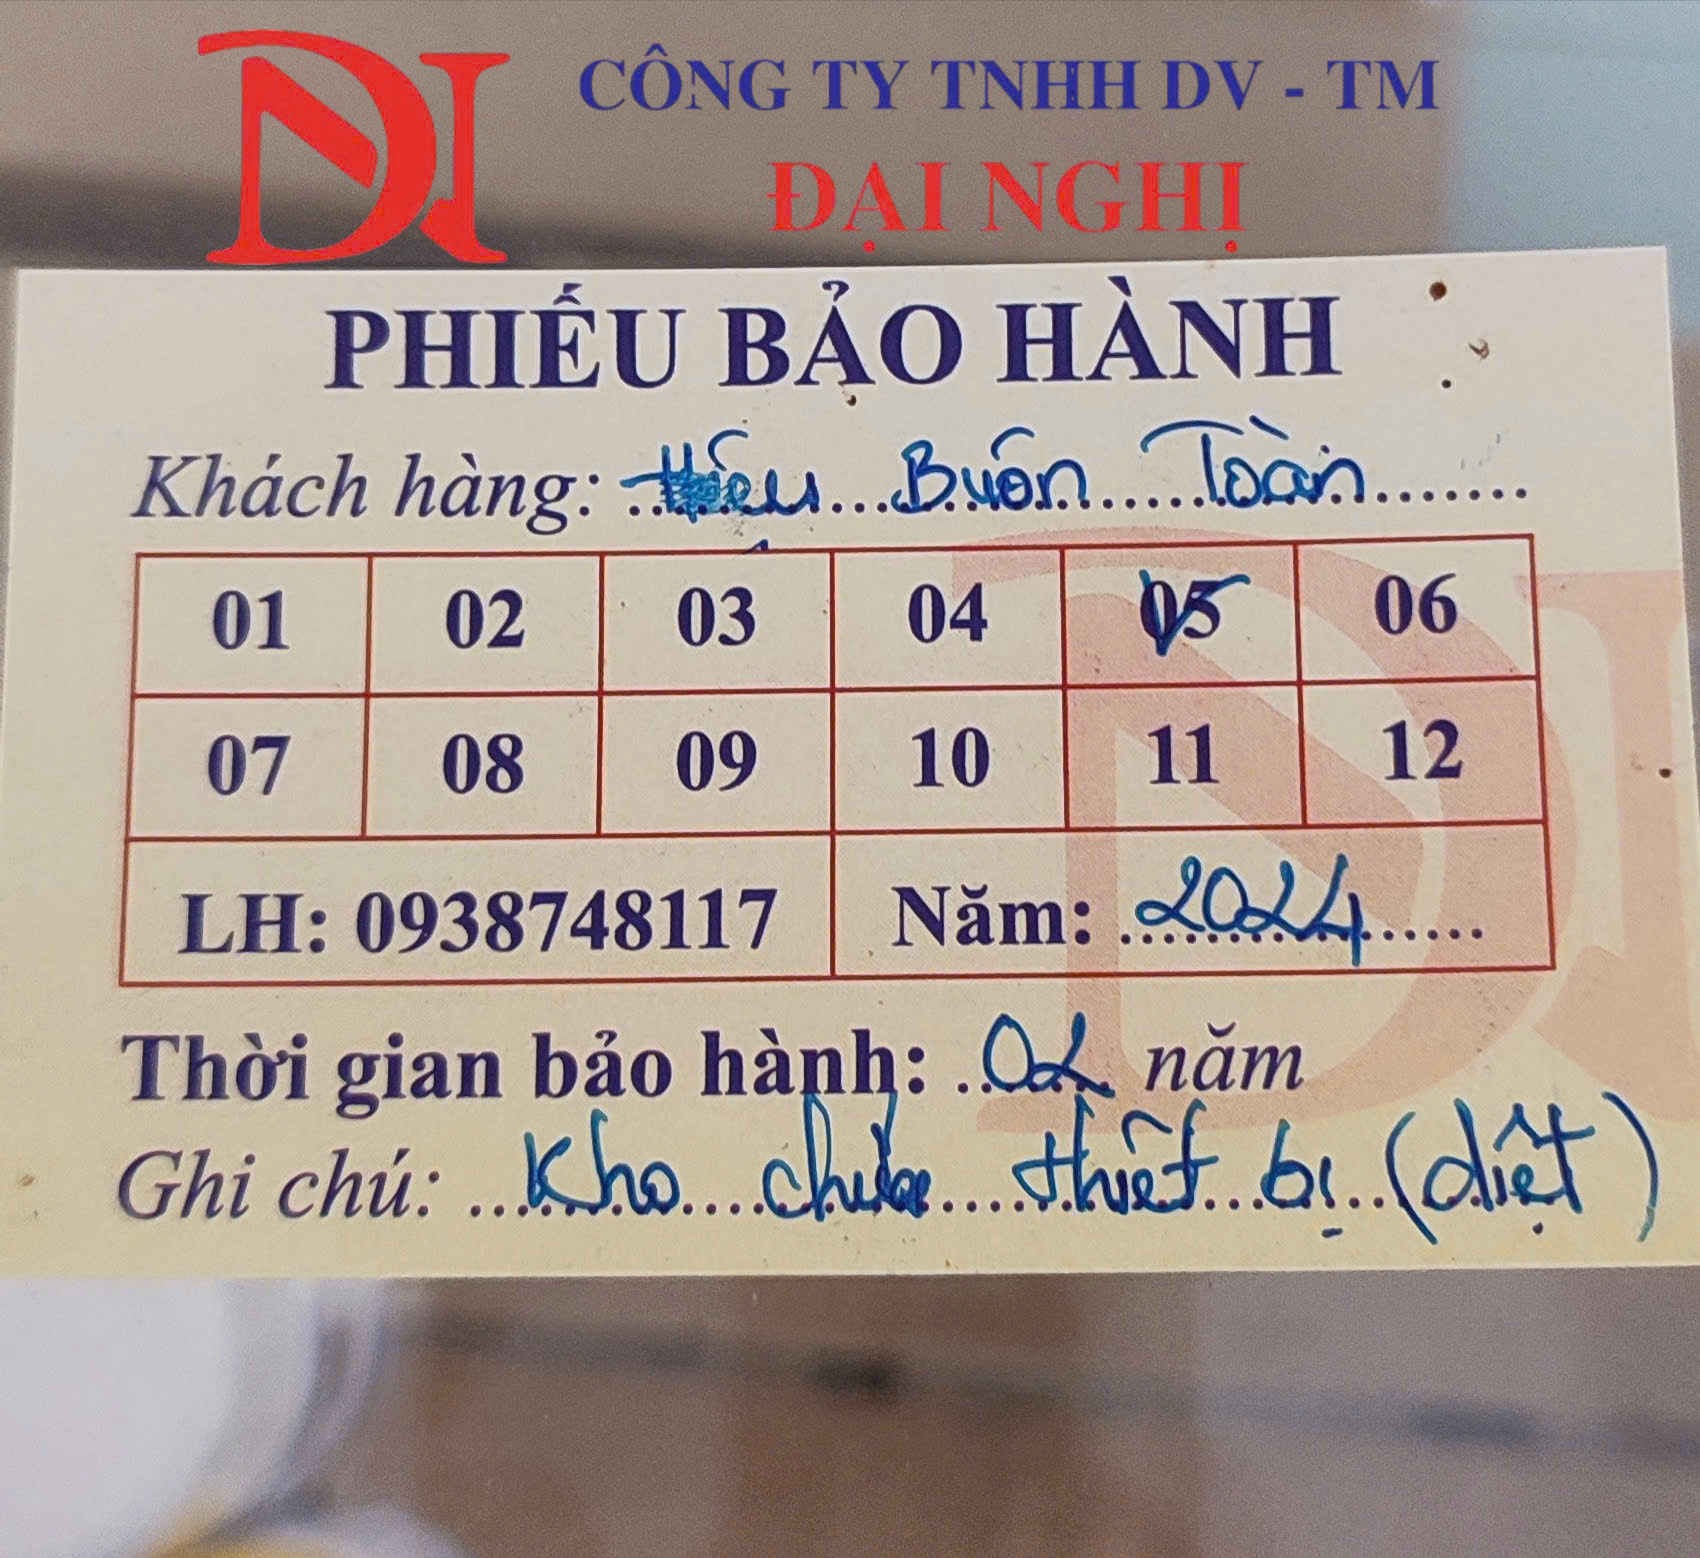 DN
CÔNG TY TNHH DV - TM
ĐẠI NGHỊ
PHIẾU BẢO HÀNH
Khách hàng: Hiếu Buôn Toàn
01 02 03 04 05 06
07 08 09 10 11 12
LH: 0938748117 Năm: 2024
Thời gian bảo hành: 02 năm
Ghi chú: Kho chứa thiết bị (diệt)